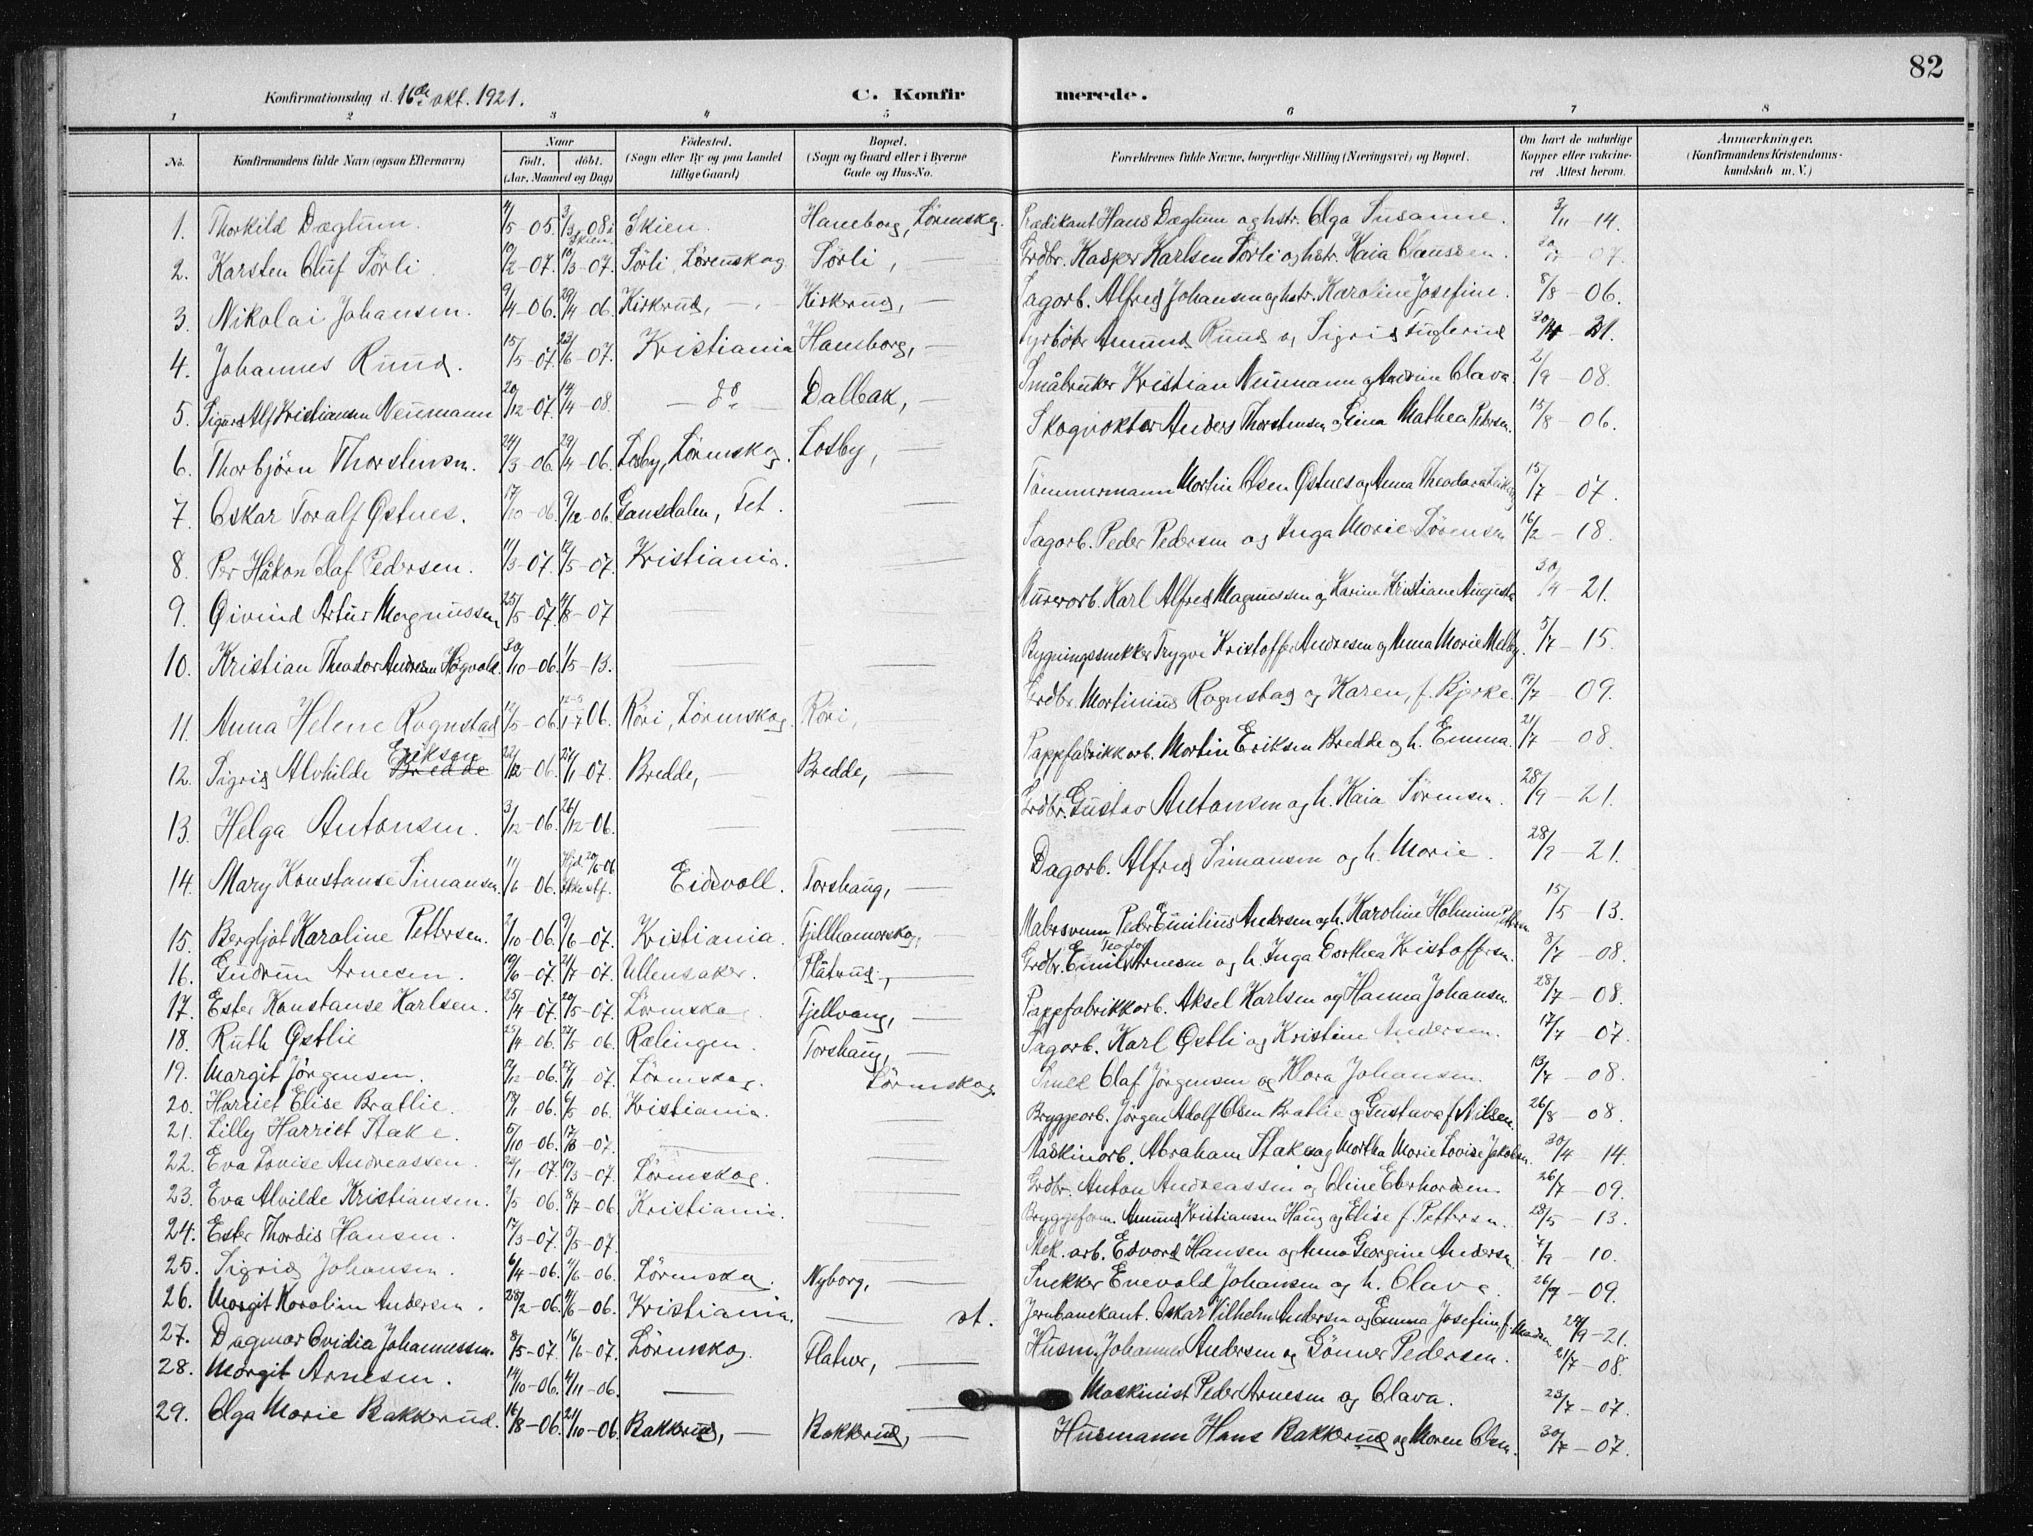 82
Konfirmationsdag d. 16de okt. 1921.
C. Konfirmerede.
1 2 3 4 5 6 7 8
No. Konfirmandens fulde Navn (ogsaa Efternavn) Naar født. døbt. (Aar, Maaned og Dag) Fødested. (Sogn eller By og paa Landet tillige Gaard) Bopæl. (Sogn og Gaard eller i Byerne Gade og Hus-No. Forældrenes fulde Navne, borgerlige Stilling (Næringsvei) og Bopæl. Om havt de naturlige Kopper eller vakcineret Attest herom. Anmærkninger. (Konfirmandens Kristendomskundskab m. V.)
1. Thorkild Dæglum. 4/5 05. 3/3 08 i Skien Skien. Haneborg, Lørenskog. Prædikant Hans Dæglum og hstr. Olga Susanne. 3/11 - 14.
2. Karsten Oluf Sörli 10/2 - 07. 10/3 - 07. Sörli, Lörenskog Sörli, — Grdbr. Kasper Karlsen Sörli og hstr. Kaia Claussen. 07.
3. Nikolai Johansen. 9/4 - 06. 29/4 06. Kirkerud, — Kirkerud, — Sagarb. Alfred Johansen og hstr. Karoline Josefine. 8/8 - 06.
4. Johannes Ruud. 15/5 - 07. 23/6 - 07. Kristiania Haneborg, — Fyrbøter Amund Ruud og Sigrid Fuglerud 21.
5. Sigurd Alf Kristiansen Neumann 20/12 - 07. 14/4 - 08. — do — Dalbak, — Småbruker Kristian Neumann og Andrine Olava. 2/9 - 08.
6. Thorbjörn Thorstensen. 24/3 - 06. 29/4 - 06. Losby, Lörenskog. Losby, — Skogvokter Anders Thorstensen og Gina Mathea Petersen. 15/8 - 06.
7. Oskar Toralf Østnes. 17/10 - 06. 9/12 - 06. Gansdalen, Fet. — Tömmermann Martin Olsen Østnes og Anna Theodora 15/7 - 07.
8. Per Håkon Olaf Pedersen. 11/3 - 07. 12/5 - 07. Kristiania. — Sagarb. Peder Pedersen og Inga Marie Sörensen 16/2 - 18.
9. Øivind Artur Magnussen 25/5 - 07. 4/8 - 07 — — Murerarb. Karl Alfred Magnussen og Karin Kristiane Augusta 30/4 - 21.
10. Kristian Theodor Andresen Högvold. 30/10 - 06. 1/5 - 13. — — Bygningssnekker Trygve Kristoffer Andresen og Anna Marie Melby. 5/7 - 15.
11. Anna Helene Rognstad 12/5 - 06. 06. Röri, Lörenskog Röri, Grdbr. Martinius Rognstad og Karen, f. Bjerke. 17/7 - 09.
12. Sigrid Alvhilde Bredde Eriksen 22/12 - 06. 27/1 07. Bredde, — Bredde, — Pappfabrikkarb. Martin Eriksen Bredde og h. Emma. 21/7 - 08.
13. Helga Antonsen. 3/12 - 06. 26/12 - 06. — — Grdbr. Gustav Antonsen og h. Kaia Sörensen. 28/9 - 21.
14. Mary Konstanse Simonsen. 11/6 06. Hjd. 20/6 - 06 Eidsvoll. Torshaug, — Dagarb. Alfred Simonsen og h. Marie. 28/9 - 21.
15. Bergljot Karoline Pettersen. 2/10 - 06. 9/6 - 07. Kristiania. Fjellhamarskog, — Malersvenn Peder Emilius Andersen og h. Karoline Holmine Pettersen 15/5 - 13.
16. Gudrun Arnesen. 19/6 - 07. 21/7 - 07. Ullensaker. Flåtrud, — Grdbr. Emil Teodor Arnesen og h. Inga Dorthea Kristoffersen. 8/7 - 08.
17. Ester Konstanse Karlsen. 25/4 07. 20/5 - 07. Lörenskog. Fjellvang, — Pappfabrikkarb. Aksel Karlsen og Hanna Johansen. 28/7 - 08.
18. Ruth Østlie 25/4 06. 27/5 06. Rælingen. Torshaug, — Sagarb. Karl Østli og Kristine Andersen. 17/7 - 07.
19. Margit Jörgensen. 17/12 - 06. 27/1 07. Lörenskog. Lörenskog Smed Olaf Jörgensen og Klara Johansen. 13/7 - 08.
20. Harriet Elise Bratlie. 19/1 06. 6/5 06. Kristiania. Bryggearb. Jörgen Adolf Olsen Bratlie og Gustava f. Nilsen. 26/8 - 08.
21. Lilly Harriet Stake. 5/10 - 06. 17/3 - 07. — — Maskinarb. Abraham Stake og Martha Marie Lovise Jakobsen. 30/4 - 14.
22. Eva Lovise Andreassen. 22/1 - 07. 10/3 - 07. Lörenskog. — Grdbr. Anton Andreassen og Oline Eberhardsen. 26/7 - 09.
23. Eva Alvilde Kristiansen. 2/5 06. 8/7 - 06. Kristiania. — Bryggeform. Amund Kristiansen Haug og Elise f. Pettersen. 28/5 - 13.
24. Ester Thordis Hansen. 17/3 - 07. 5/5 - 07. — — Mek. arb. Edvard Hansen og Anna Georgine Andersen. 7/2 - 10.
25. Sigrid Johansen. 6/4 - 06. 4/6 - 06. Lörenskog. Nyborg, — Snekker Enevald Johansen og h. Olava. 26/7 - 09.
26. Margit Karoline Andersen. 28/2 - 06. 4/6 - 06. Kristiania. — st. Jernbanekont. Oskar Vilhelm Andersen og Emma Josefine, f. Madsen 28/9 - 21.
27. Dagmar Ovidia Johannessen. 8/5 - 07. 16/6 - 07. Lörenskog. Flatner, — Husm. Johannes Andersen og Gönner Pedersen. 21/7 - 08.
28. Margit Arnesen. 14/10 - 06. 4/11 - 06. — — Maskinist Peder Arnesen og Olava. 23/7 - 07.
29. Olga Marie Bakkerud. 16/8 - 06. 21/10 - 06. Bakkerud, — Bakkerud, — Husmann Hans Bakkerud og Maren Olsen. 30/7 - 07.